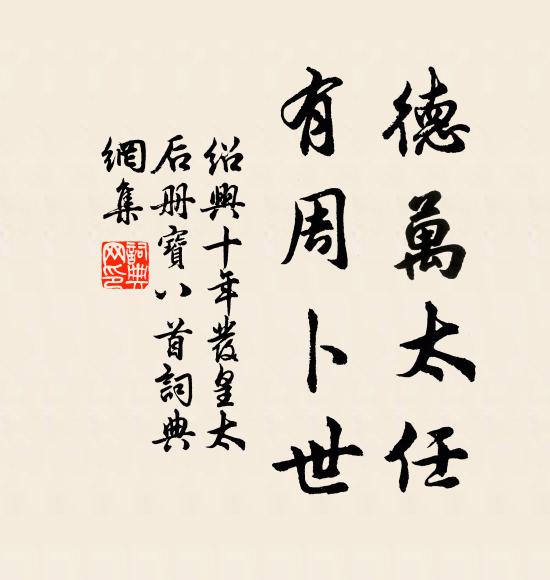 德萬太任
有周卜世
紹興十年發皇太
后册寶八首詞典
網集
詞典網印